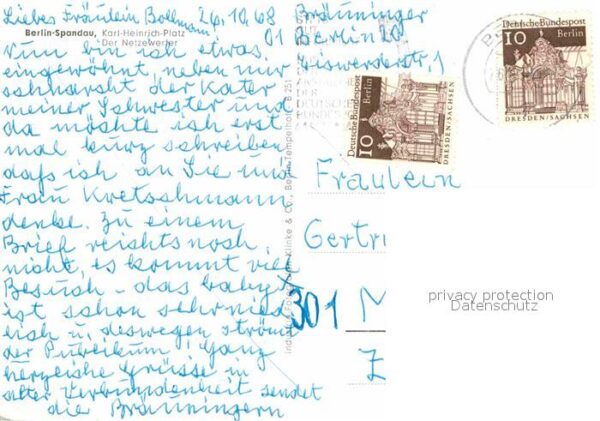 Liebes Fräulein Bollmann! 26.10.68
Berlin-Spandau, Karl-Heinrich-Platz
Der Netzewerfer
nun bin ich etwas
eingewöhnt, neben mir
schnarcht der Kater
meiner Schwester und
da möchte ich erst
mal kurz schreiben
daß ich an Sie und
Frau Kretschmann
denke. Zu einem
Brief reichts noch
nicht, es kommt viel
Besuch - das baby
ist schon sehr nied
lich u. deswegen ströme
der Publikum. Ganz
herzliche Grüsse in
alter Verbundenheit sendet
die Bräuningern
Bräuninger
01 Berlin 20
str 1
DER
DEUTSCHEN
Klinke & Co., Berlin-Tempelhof B 251
Deutsche Bundespost
Berlin
10
DRESDEN/SACHSEN
Deutsche Bundespost
10
Berlin
DRESDEN/SACHSEN
Fräulein
Gertr
301 M
Z
privacy protection
Datenschutz